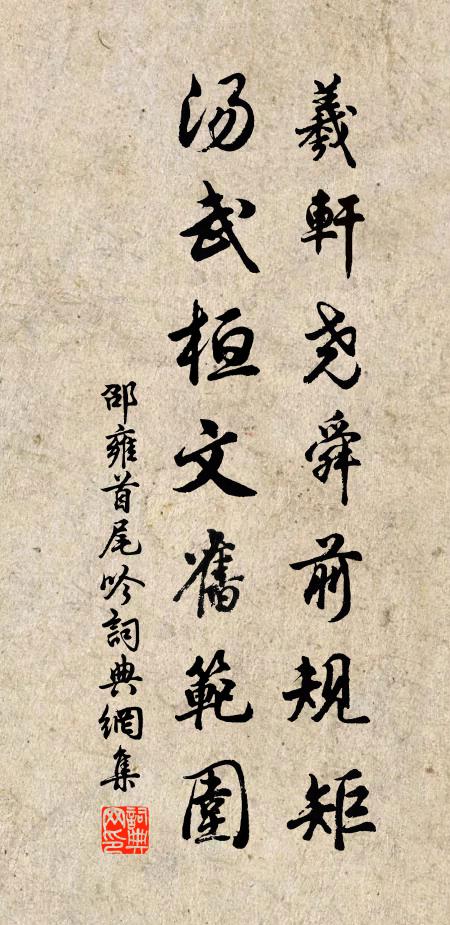 羲軒尧舜前規矩
湯武桓文舊範圍
邵雍首尾吟詞典網集
詞典
网印